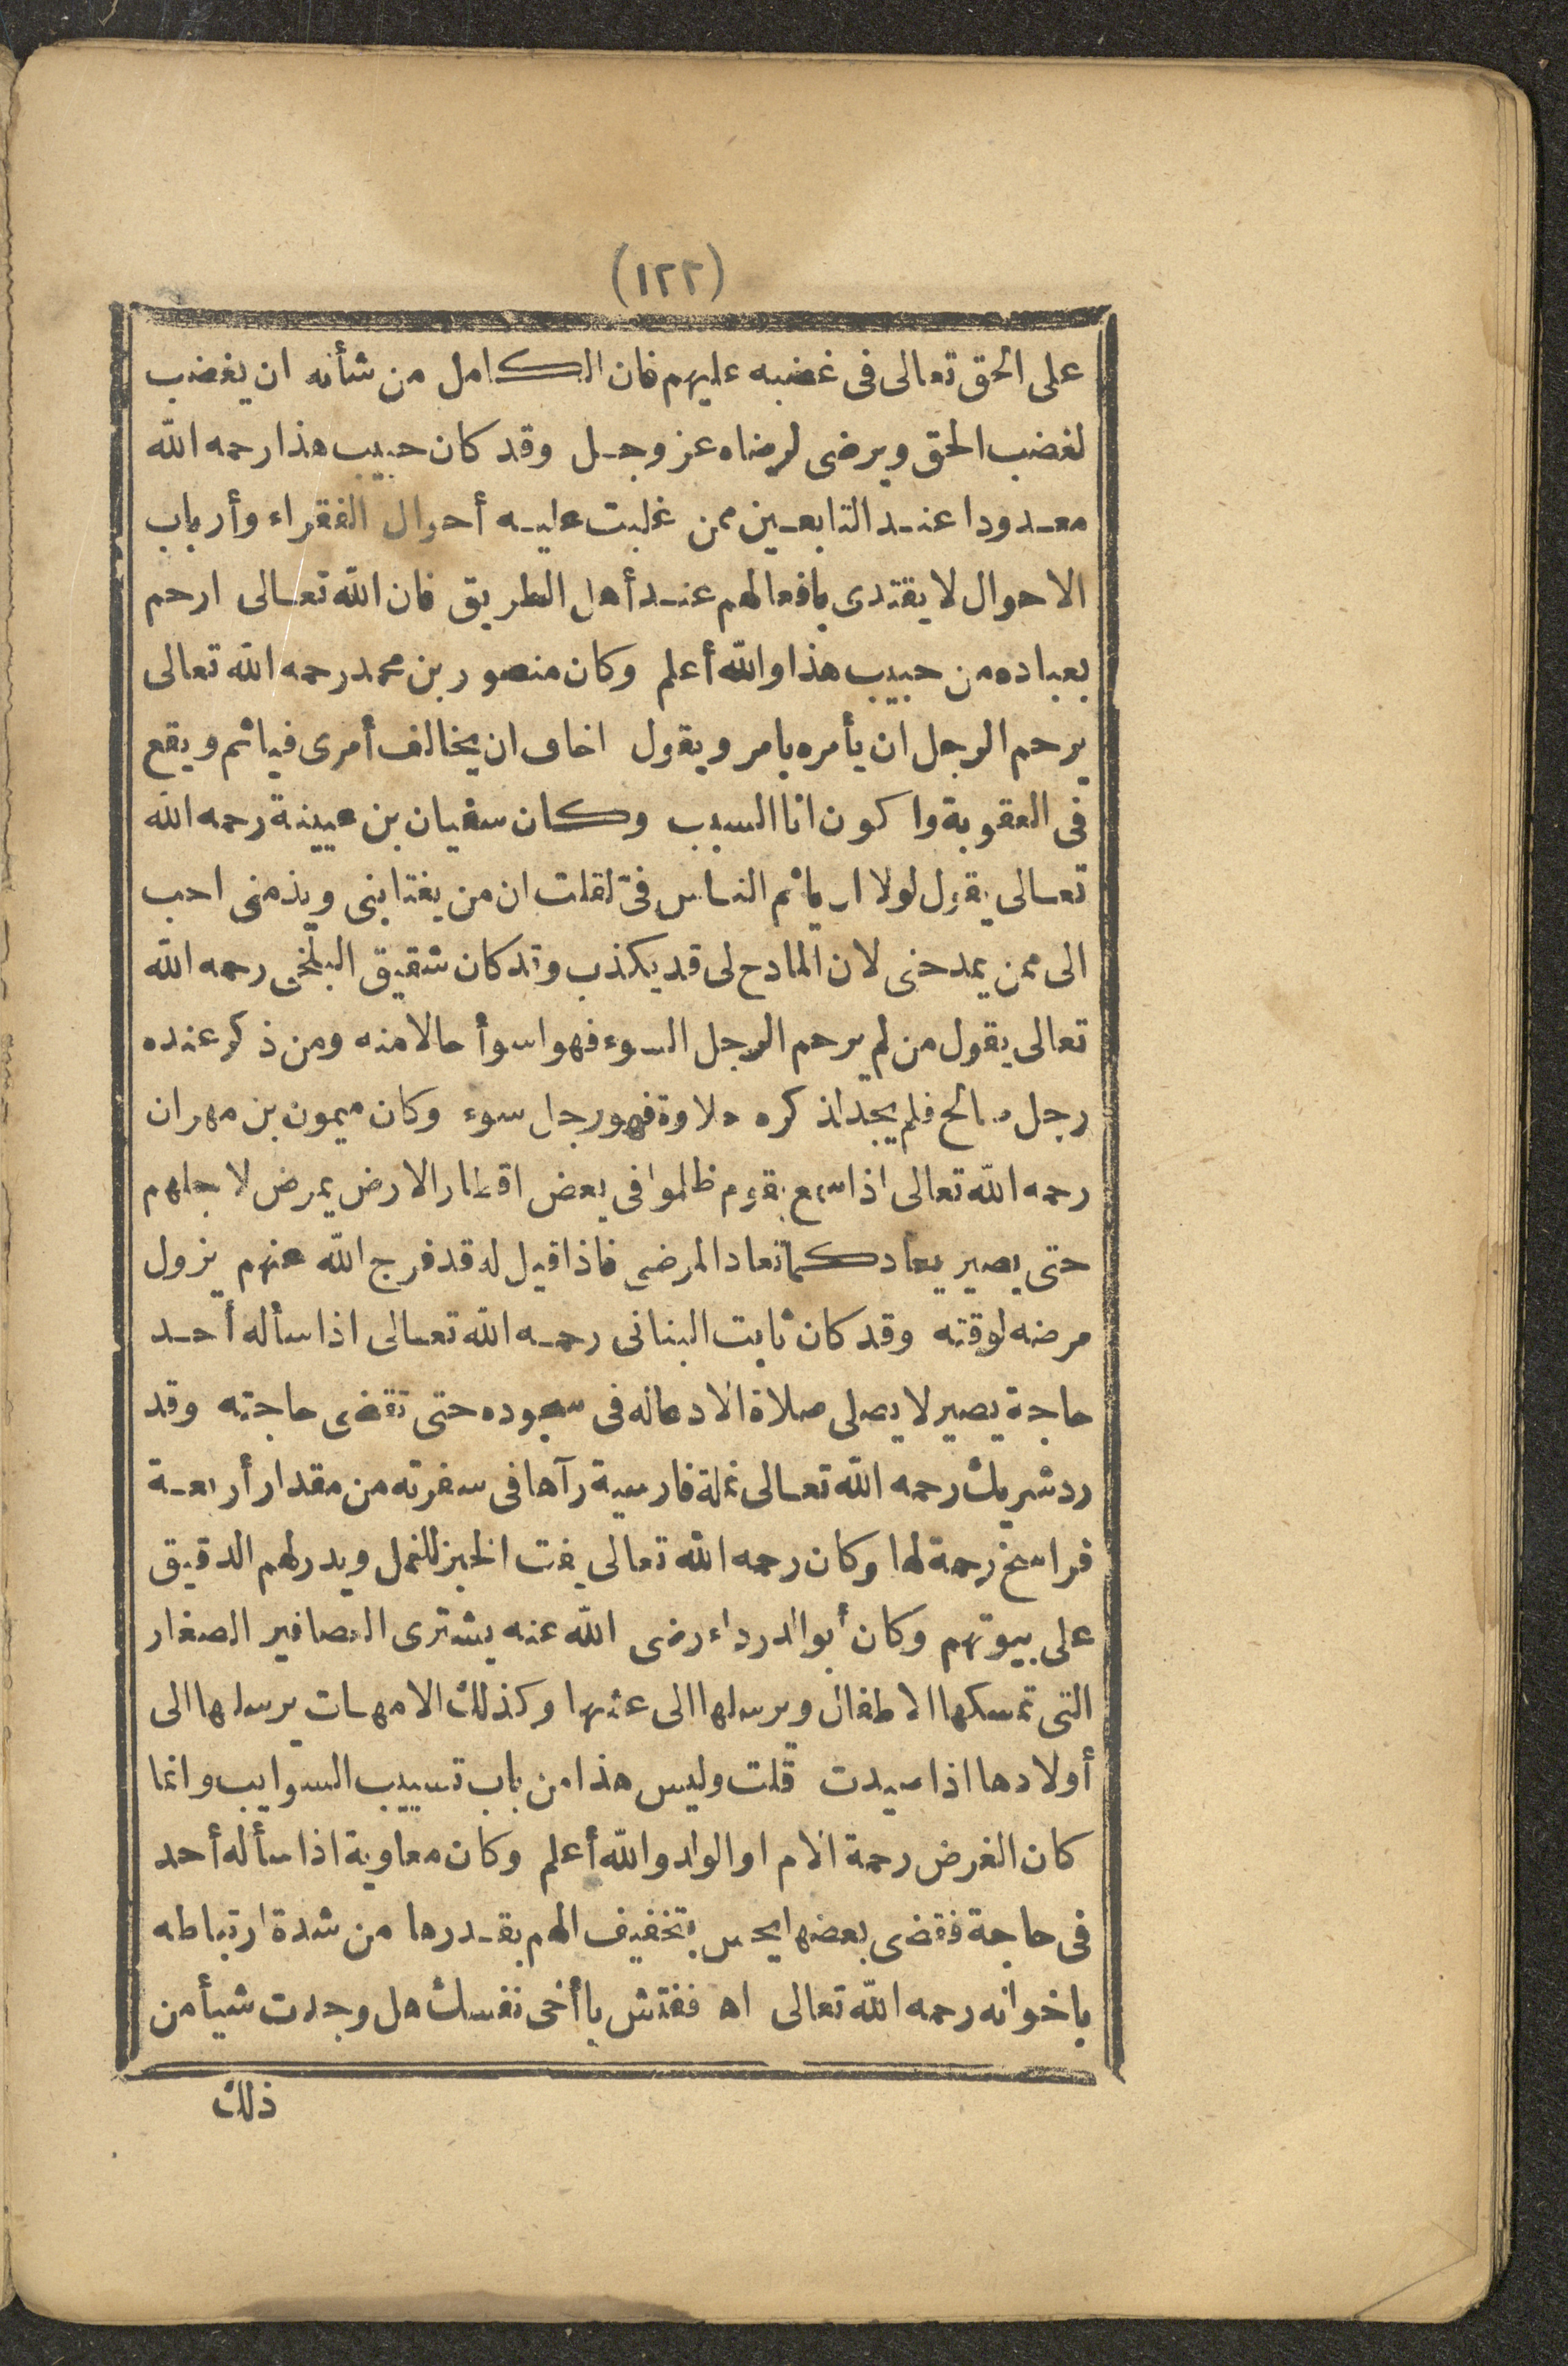 (١٢٢)
على الحق تعالى فى غضبه عليهم فان الكامل من شأنه ان يغضب
لغضب الحق ويرضى لرضاه عز وجل وقد كان حبيب هذا رحمه الله
معدودا عند التابعين ممن غلبت عليه أحوال الفقراء وأرباب
الاحوال لا يقتدى بافعالهم عند أهل الطريق فان الله تعالى ارحم
بعباده من حبيب هذا والله أعلم وكان منصور بن محمد رحمه الله تعالى
يرحم الرجل ان يأمره بامر ويقول اخاف ان يخالف أمرى فياثم ويقع
فى العقوبة واكون انا السبب وكان سفيان بن عيينة رحمه الله
تعالى يقول لولا ان ياثم الناس فىّ لقلت ان من يغتابنى ويذمنى احب
الى ممن يمدحنى لان المادح لى قد يكذب وقد كان شقيق البلخى رحمه الله
تعالى يقول من لم يرحم الرجل السوء فهو اسوأ حالا منه ومن ذكر عنده
رجل صالح فلم يجد لذكره حلاوة فهو رجل سوء وكان ميمون بن مهران
رحمه الله تعالى اذا سمع بقوم ظلموا فى بعض اقطار الارض يمرض لاجلهم
حتى يصير يعاد كما تعاد المرضى فاذا قيل له قد فرج الله عنهم يزول
مرضه لوقته وقد كان ثابت البنانى رحمه الله تعالى اذا سأله أحد
حاجة يصير لا يصلى صلاة الا دعا له فى سجوده حتى تقضى حاجته وقد
رد شريك رحمه الله تعالى نملة فارسية رآها فى سفرته من مقدار أربعة
فراسخ رحمة لها وكان رحمه الله تعالى يفت الخبز للنمل ويدر لهم الدقيق
على بيوتهم وكان أبو الدرداء رضى الله عنه يشترى العصافير الصغار
التى تمسكها الاطفال ويرسلها الى عشها وكذلك الامهات يرسلها الى
أولادها اذا صيدت قلت وليس هذا من باب تسييب السوايب وانما
كان الغرض رحمة الام او الولد والله أعلم وكان معاوية اذا سأله أحد
فى حاجة فقضى بعضها يحس بتخفيف الهم بقدرها من شدة ارتباطه
باخوانه رحمه الله تعالى اه ففتش يا أخى نفسك هل وجدت شيأ من
ذلك